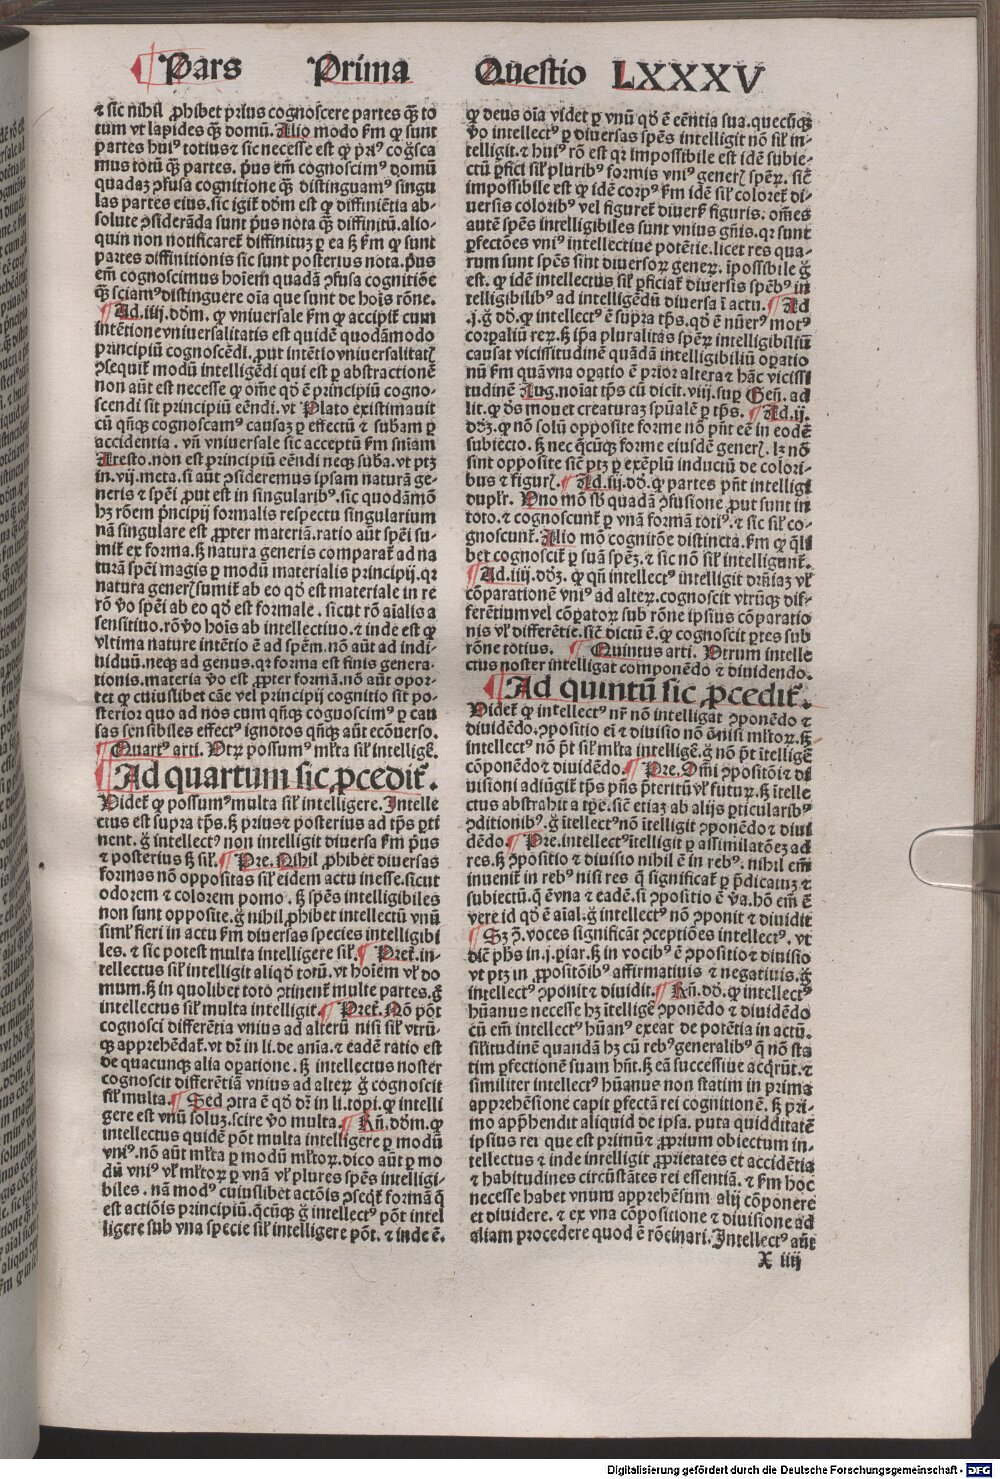 Pars Prima Questio LXXXV
⁊ sic nihil ꝓhibet prius cognoscere partes qȝ to
tum vt lapides qȝ domū. Alio modo ẜm ꝙ sunt
partes huiꝰ totius ⁊ sic necesse est ꝙ priꝰ cogsca
mus totū qȝ partes. pͥus em̄ cognoscimꝰ domū
quadaȝ ꝯfusa cognitione qȝ distinguamꝰ singu
las partes eius. sic igit᷑ dōm est ꝙ diffiniētia ab-
solute ꝯsiderāda sunt pͥus nota qȝ diffinitū. alio-
quin non notificaret᷑ diffinituȝ ꝑ ea sȝ ẜm ꝙ sunt
partes diffinitionis sic sunt posterius nota. pͥus
em̄ cognoscimus hoīem quadā ꝯfusa cognitiōe
qȝ sciamꝰ distinguere oīa que sunt de hoīs rōne.
¶ Ad .iiij. dōm. ꝙ vniuersale ẜm ꝙ accipit᷑ cum
intētione vniuersalitatis est quidē quodāmodo
principiū cognoscēdi. ꝓut intētio vniuersalitatꝭ
ꝯsequit᷑ modū intelligēdi qui est ꝑ abstractionē
non aūt est necesse ꝙ om̄e qd̄ ē principiū cogno-
scendi sit principiū eēndi. vt Plato existimauit
cū qn̄qȝ cognoscamꝰ causaȝ ꝑ effectū ⁊ subam ꝑ
accidentia. vn̄ vniuersale sic acceptū ẜm sniam
Aresto. non est principiū eēndi neqȝ suba. vt ptȝ
in .vij. meta. si aūt ꝯsideremus ipsam naturā ge-
neris ⁊ spēi ꝓut est in singularibꝰ. sic quodāmō
hȝ rōem pͥncipij formalis respectu singularium
nā singulare est ꝓpter materiā. ratio aūt spēi su-
mit᷑ ex forma. sȝ natura generis comparat᷑ ad na
turā spēi magis ꝑ modū materialis principij. qꝛ
natura generꝭ sumit᷑ ab eo qd̄ est materiale in re
rō ꝟo spēi ab eo qd̄ est formale. sicut rō aīalis a
sensitiuo. rō ꝟo hoīs ab intellectiuo. ⁊ inde est ꝙ
vltima nature intētio ē ad spēm. nō aūt ad indi-
uiduū. neqȝ ad genus. qꝛ forma est finis genera-
tionis. materia ꝟo est ꝓpter formā. nō aūt opor-
tet ꝙ cuiuslibet cāe vel principij cognitio sit po-
sterior quo ad nos cum qn̄qȝ cognoscimꝰ ꝑ cau
sas sensibiles effectꝰ ignotos qn̄qȝ aūt ecōuerso.
¶ Quartꝰ arti. Vtrꝝ possumꝰ ml̄ta sil᷑ intelligē.
Ad quartum sic ꝓcedit᷑.
Videt᷑ ꝙ possumꝰ multa sil᷑ intelligere. Intelle
ctus est supra tp̄s. sȝ prius ⁊ posterius ad tp̄s ꝑti
nent. ḡ intellectꝰ non intelligit diuersa ẜm pͥus
⁊ posterius sȝ sil᷑. ¶ Pre. Nihil ꝓhibet diuersas
formas nō oppositas sil᷑ eidem actu inesse. sicut
odorem ⁊ colorem pomo. sȝ spēs intelligibiles
non sunt opposite. ḡ nihil ꝓhibet intellectū vnū
siml᷑ fieri in actu ẜm diuersas species intelligibi
les. ⁊ sic potest multa intelligere sil᷑. ¶ Pret᷑. in-
tellectus sil᷑ intelligit aliqd̄ totū. vt hoīem vl᷑ do
mum. sȝ in quolibet toto ꝯtinent᷑ multe partes. ḡ
intellectus sil᷑ multa intelligit. ¶ Pret᷑. Nō pōt
cognosci differētia vnius ad alterū nisi sil᷑ vtrū-
qȝ apprehēdat᷑. vt dr̄ in li. de anīa. ⁊ eadē ratio est
de quacunqȝ alia oꝑatione. sȝ intellectus noster
cognoscit differētiā vnius ad alterꝝ ḡ cognoscit
sil᷑ multa. ¶ Sed ꝯtra ē qd̄ dr̄ in li. topi. ꝙ intelli
gere est vnū soluȝ. scire ꝟo multa. ¶ Rn̄. dōm. ꝙ
intellectus quidē pōt multa intelligere ꝑ modū
vniꝰ. nō aūt ml̄ta ꝑ modū ml̄torꝝ. dico aūt ꝑ mo
dū vniꝰ vl᷑ ml̄torꝝ ꝑ vnā vl᷑ plures spēs intelligi-
biles. nā modꝰ cuiuslibet actōis ꝯseqt᷑ formā q̄
est actiōis principiū. qͥcūqȝ ḡ intellectꝰ pōt intel
ligere sub vna specie sil᷑ intelligere pōt. ⁊ inde ē.
ꝙ deus oīa videt ꝑ vnū qd̄ ē eēntia sua. quecūqȝ
ꝟo intellectꝰ ꝑ diuersas spēs intelligit nō sil᷑ in-
telligit. ⁊ huiꝰ rō est qꝛ impossibile est idē subie-
ctū ꝑfici sil᷑ pluribꝰ formis vniꝰ generꝭ spēꝝ. sic̄
impossibile est ꝙ idē corpꝰ ẜm idē sil᷑ coloret᷑ di-
uersis coloribꝰ vel figuret᷑ diuersꝭ figuris. om̄es
autē spēs intelligibiles sunt vnius gn̄is. qꝛ sunt
ꝑfectōes vniꝰ intellectiue potētie. licet res qua-
rum sunt spēs sint diuersoꝝ generꝝ. īpossibile ḡ
est. ꝙ idē intellectus sil᷑ ꝑficiat᷑ diuersis spēbꝰ in
telligibilibꝰ ad intelligēdū diuersa ī actu. ¶ Ad
.j. ḡ dō. ꝙ intellectꝰ ē supra tp̄s. qd̄ ē nūerꝰ motꝰ
corꝑaliū reꝝ. sȝ ip̄a pluralitas spēꝝ intelligibiliū
causat vicissitudinē quādā intelligibiliū oꝑatio
nū ẜm quā vna oꝑatio ē prior altera ⁊ hāc vicissi
tudinē Aug. noīat tp̄s cū dicit .viij. suꝑ Gen̄. ad
lit. ꝙ dꝰ mouet creaturaȝ spūalē ꝑ tp̄s. ¶ Ad .ij.
dōȝ. ꝙ nō solū opposite forme nō pn̄t eē in eodē
subiecto. sȝ nec qͥcūqȝ forme eiusdē generꝭ. lȝ nō
sint opposite sic̄ ptȝ ꝑ exēplū inductū de colori-
bus ⁊ figurꝭ. ¶ Ad .iij. dō. ꝙ partes pn̄t intelligi
duplr̄. Vno mō sb̄ quadā ꝯfusione ꝓut sunt in
toto. ⁊ cognoscunt᷑ ꝑ vnā formā totiꝰ. ⁊ sic sil᷑ co-
gnoscunt᷑. Alio mō cognitōe distincta. ẜm ꝙ qͥli
bet cognoscit᷑ ꝑ suā spēȝ. ⁊ sic nō sil᷑ intelligunt᷑.
¶ Ad .iiij. dōȝ. ꝙ qn̄ intellectꝰ intelligit dr̄niaȝ vl᷑
cōparationē vniꝰ ad alterꝝ. cognoscit vtrūqȝ dif-
ferētium vel cōꝑatoꝝ sub rōne ipsius cōparatio
nis vl᷑ differētie. sic̄ dictū ē. ꝙ cognoscit ꝑtes sub
rōne totius. ¶ Quintus arti. Vtrum intelle
ctus noster intelligat componēdo ⁊ diuidendo.
Ad quintū sic ꝓcedit᷑.
Videt᷑ ꝙ intellectꝰ nr̄ nō intelligat ꝯponēdo ⁊
diuidēdo. ꝯpositio eī ⁊ diuisio nō ē nisi ml̄torꝝ. sȝ
intellectꝰ nō pōt sil᷑ ml̄ta intelligē. ḡ nō pōt ītelligē
cōponēdo ⁊ diuidēdo. ¶ Pre. Om̄i ꝯpositōi ⁊ di
uisioni adiūgit᷑ tp̄s pn̄s p̄teritū vl᷑ futurꝝ. sȝ ītelle
ctus abstrahit a tp̄e. sic̄ etiaȝ ab alijs ꝑticularibꝰ
ꝯditionibꝰ. ḡ ītellectꝰ nō ītelligit ꝯponēdo ⁊ diui
dēdo. ¶ Pre. intellectꝰ ītelligit ꝑ assimilatōeȝ ad
res. sȝ ꝯpositio ⁊ diuisio nihil ē in rebꝰ. nihil em̄
inuenit᷑ in rebꝰ nisi res q̄ significat᷑ ꝑ p̄dicatuȝ ⁊
subiectū. q̄ ē vna ⁊ eadē. si ꝯpositio ē ꝟa. hō em̄ ē
vere id qd̄ ē aīal. ḡ intellectꝰ nō ꝯponit ⁊ diuidit
¶ Sȝ ꝯ. voces significāt ꝯceptiōes intellectꝰ. vt
dic̄ ph̄s in .j. ꝑiar. sȝ in vocibꝰ ē ꝯpositio ⁊ diuisio
vt ptȝ in ꝓpositōibꝰ affirmatiuis ⁊ negatiuis. ḡ
intellectꝰ ꝯponit ⁊ diuidit. ¶ Rn̄. dō. ꝙ intellectꝰ
hūanus necesse hȝ ītelligē ꝯponēdo ⁊ diuidēdo
cū em̄ intellectꝰ hūanꝰ exeat de potētia in actū.
sil᷑itudinē quandā hȝ cū rebꝰ generalibꝰ q̄ nō sta
tim ꝑfectionē suam hn̄t. sȝ eā successiue acqͥrūt. ⁊
similiter intellectꝰ hūanus non statim in prima
apprehēsione capit ꝑfectā rei cognitionē. sȝ pri-
mo app̄hendit aliquid de ipsa. puta quidditatē
ipsius rei que est primū ⁊ ꝓprium obiectum in-
tellectus ⁊ inde intelligit ꝓprietates et accidētia
⁊ habitudines circūstātes rei essentiā. ⁊ ẜm hoc
necesse habet vnum apprehēsum alij cōponere
et diuidere. ⁊ ex vna cōpositione ⁊ diuisione ad
aliam procedere quod ē rōcinari. Intellectꝰ aūt
X iiij
Digitalisierung gefördert durch die Deutsche Forschungsgemeinschaft - DFG